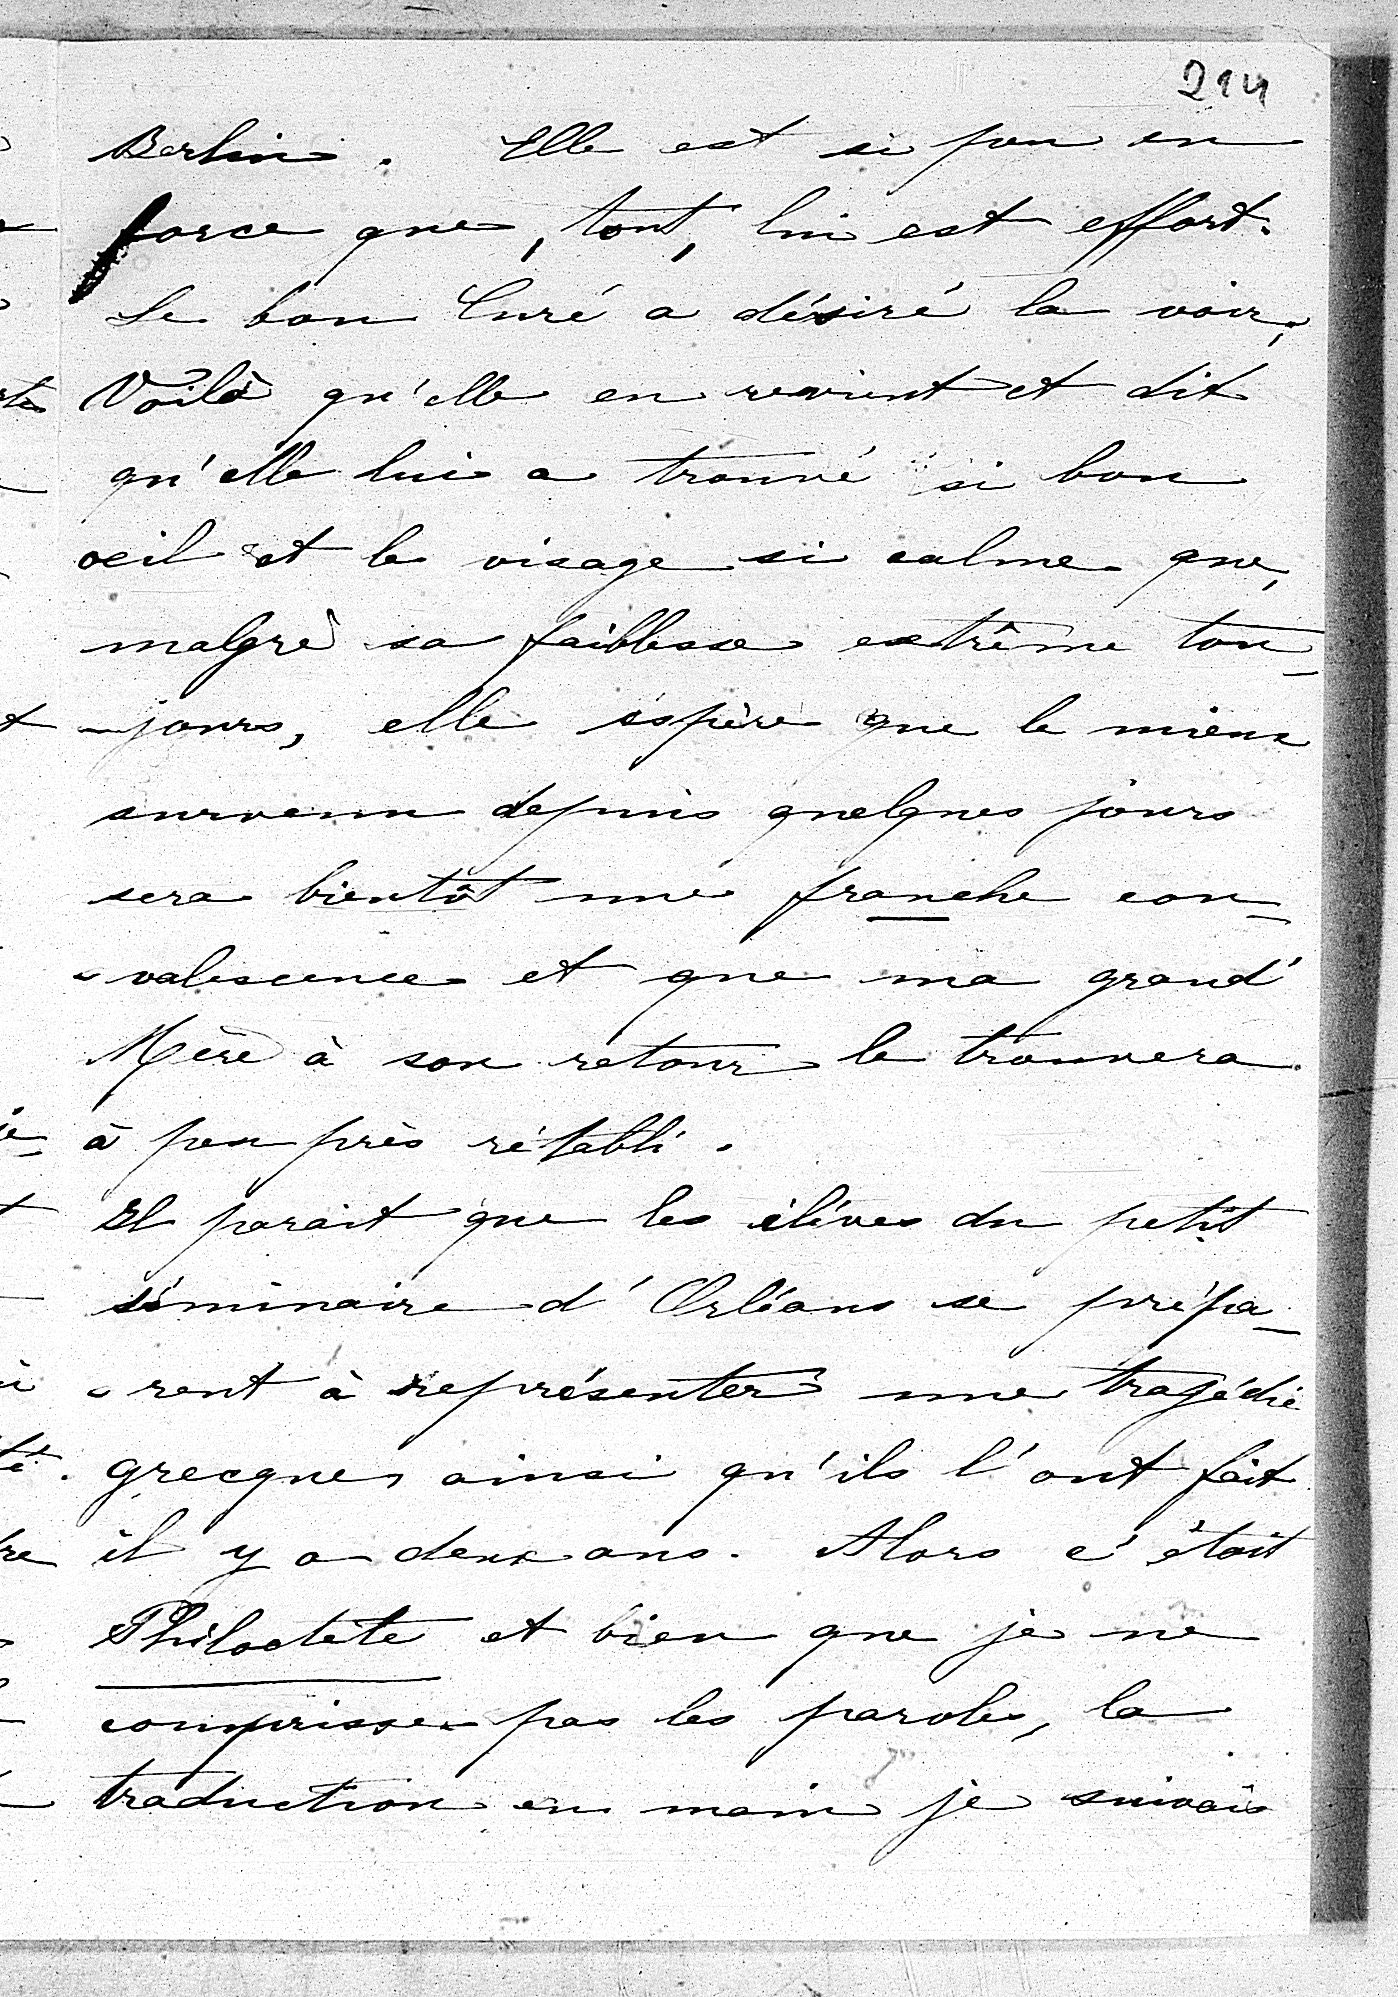 214
Berlin. Elle est si peu en
force que, tout, lui est effort.
Le bon Curé a désiré la voir;
Voilà qu'elle en revient et dit
qu'elle lui a trouvé si bon
oeil et le visage si calme que,
malgré sa faiblesse extrême tou-
-jours, elle espère que le mieux
survenu depuis quelques jours
sera bientôt une franche con-
-valescence et que ma grand'
Mère à son retour le trouvera
à peu près rétabli.
Il parait que les élèves du petit
séminaire d'Orléans se prépa-
-rent à représenter une tragédie
grecque, ainsi qu'ils l'ont fait
il y a deux ans. Alors c'était
Philoctète et bien que je ne
comprisse pas les paroles, la
traduction en main je suivais